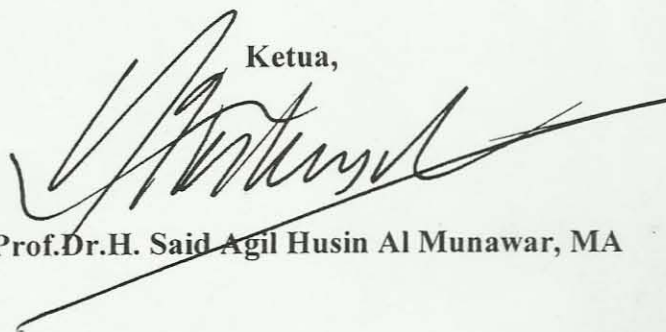 Ketua,
Prof.Dr.H. Said Agil Husin Al Munawar, MA